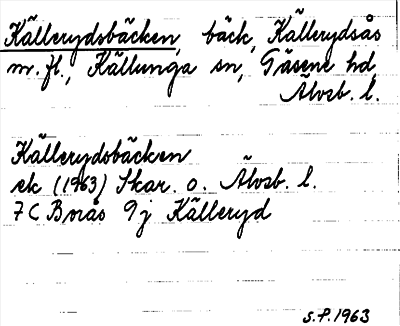 Källerydsbäcken, bäck, Källerydsås
m. fl., Källunga sn, Gäsene hd,
Älvsb. l.
Källerydsbäcken
ek (1963) Skar. o. Älvsb. l.
7 C Borås 9j Källeryd
S.P. 1963